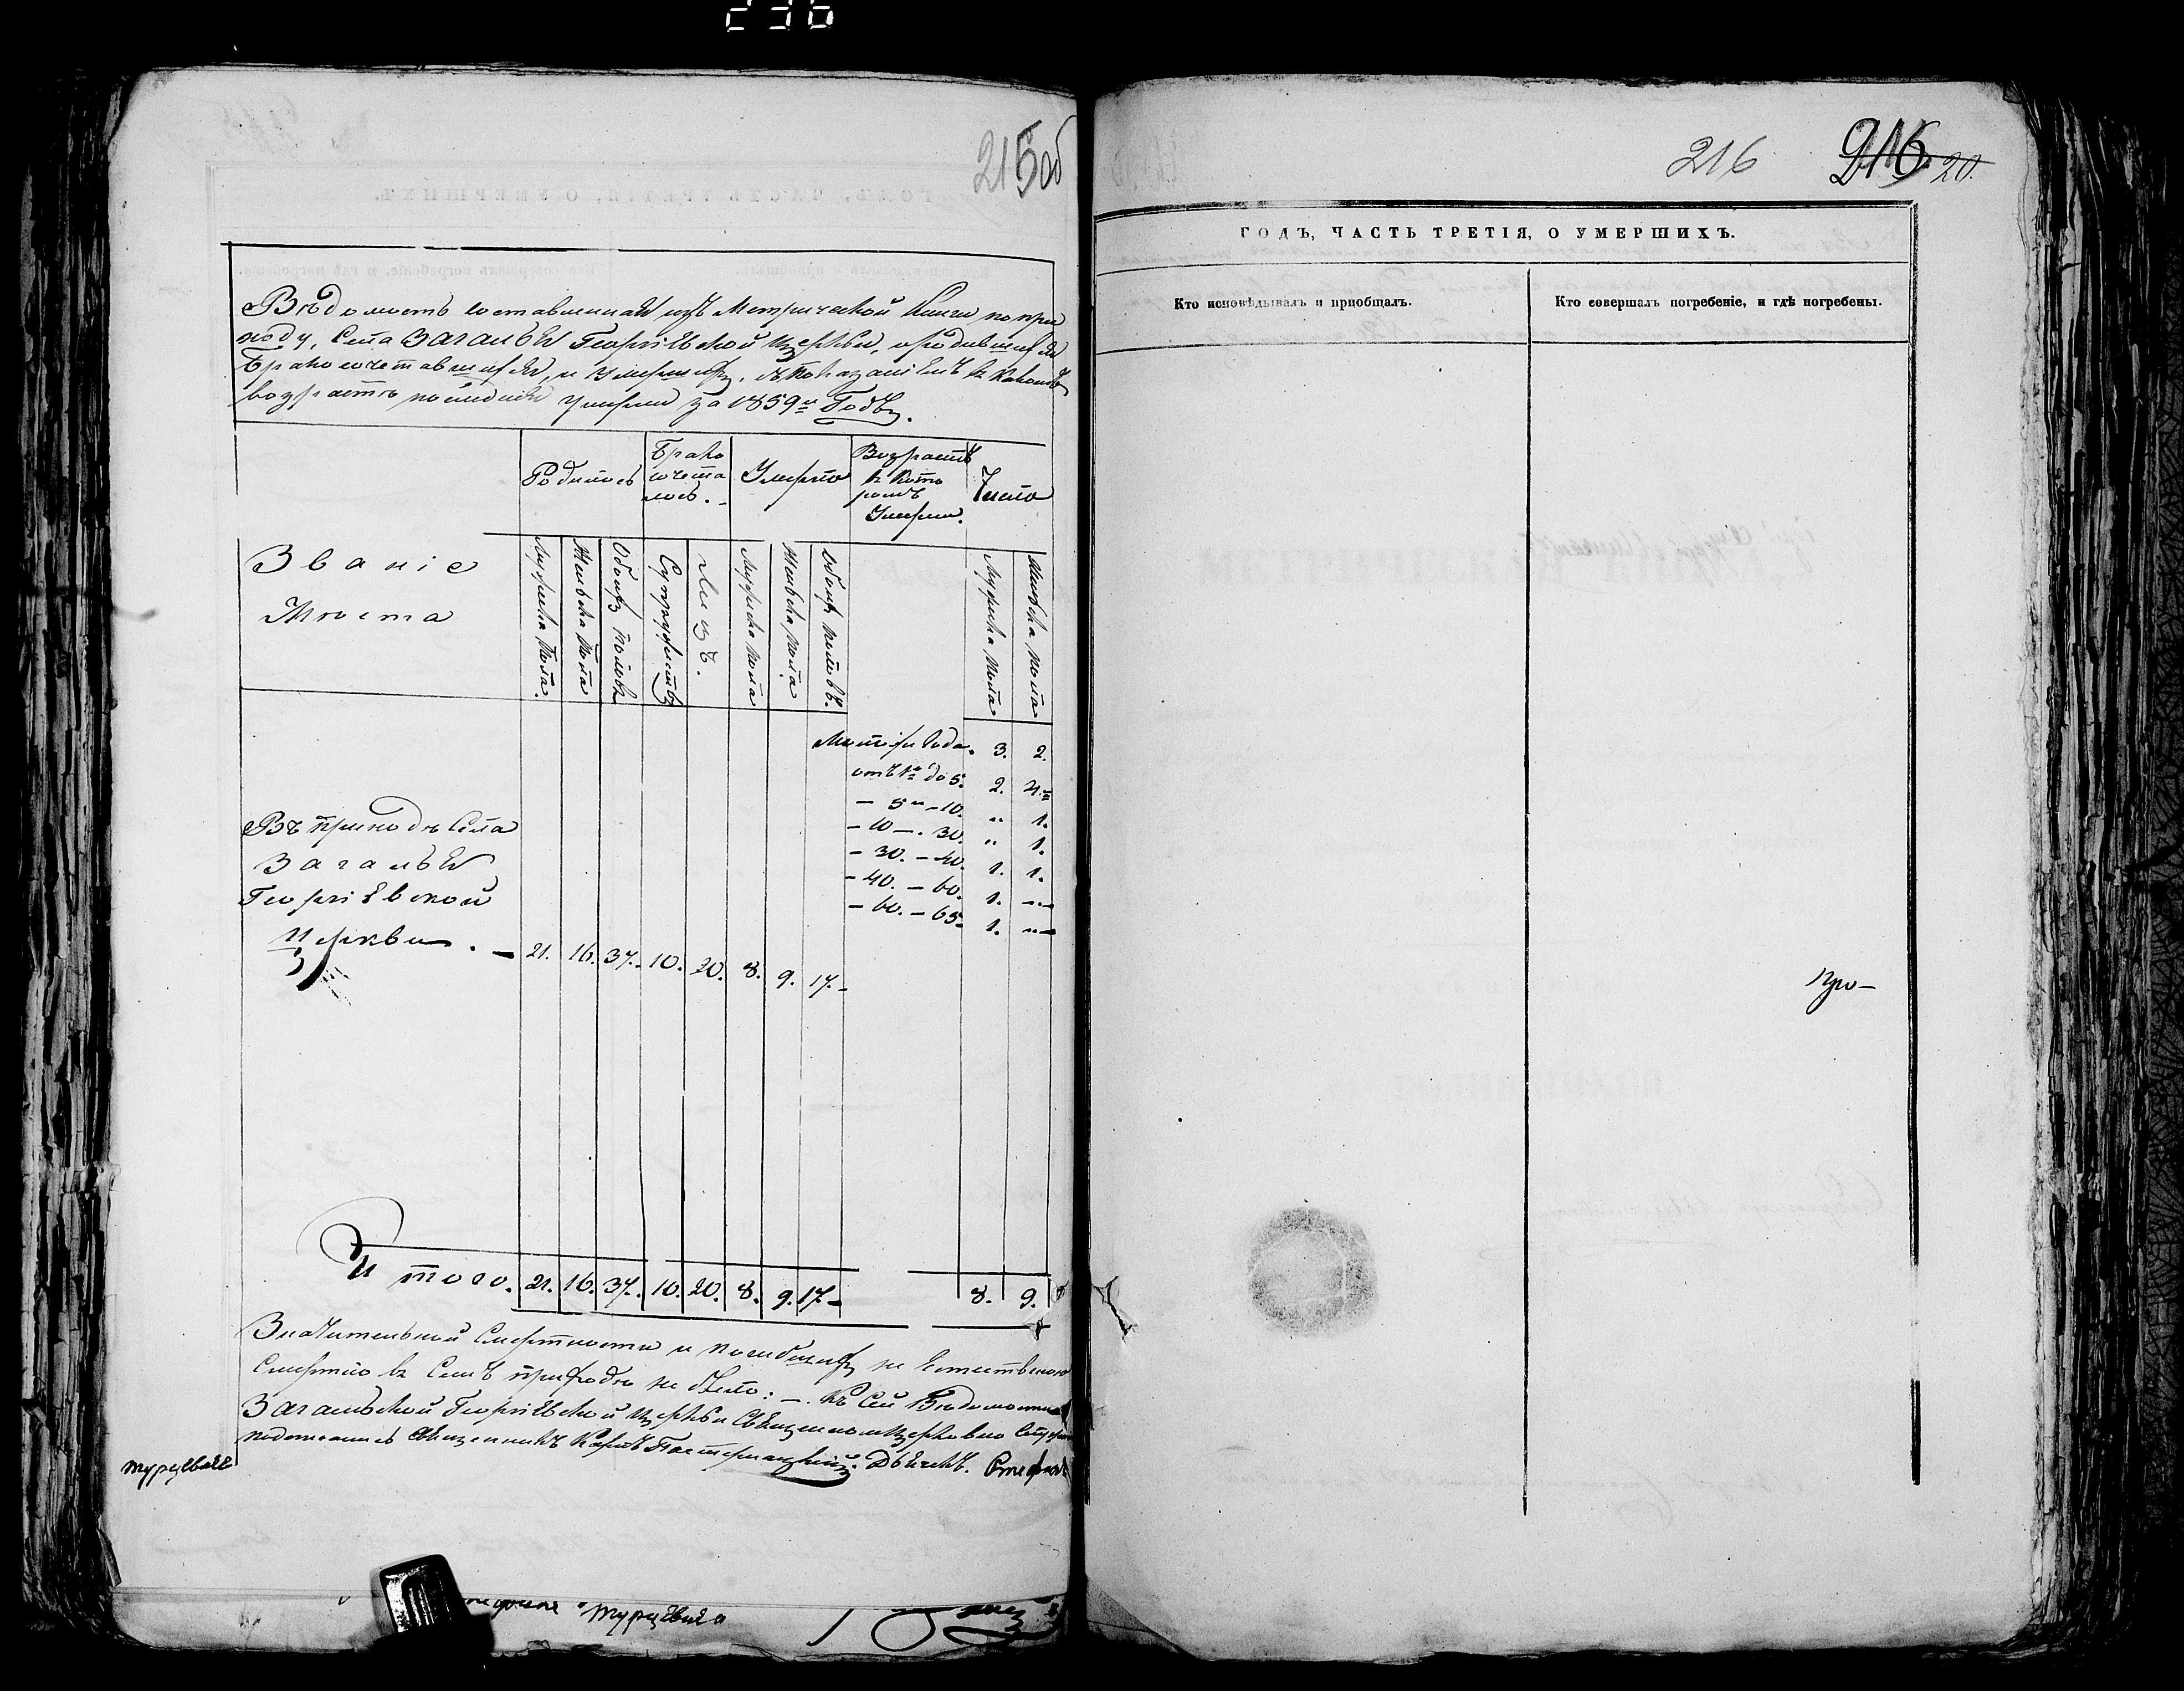 236
215 об
Вѣдомость составленная изъ Метрической Книги по при
ходу, Села Загалья Георгіевской церкви, о родившихся
Бракосочетавшихся, и умершихъ, съ показаніемъ въ какомъ
возрастѣ последнія умерли за 1859й Годъ.
Званіе
Мѣста
Родилось
Брако
сочета
лось.
Умерло
Возрастъ
въ кото
ромъ
Умерли.
Число
Мужеска пола.
Женска пола
Обоихъ половъ
Супружествъ
Лицъ.
Мужеска пола
Женска пола
Обоихъ половъ.
Мужеска пола
Женска пола
Менѣе Года. 3. 2.
отъ 1го до 5. 2. 4.
— 5и — 10. " 1.
— 10 — 30. " 1.
— 30. — 40. 1. 1.
— 40. — 60. 1. "
— 60. — 65. 1. "
Въ приходѣ Села
Загалья
Георгіевской
церкви. — 21. 16. 37. 10. 20. 8. 9. 17.
Итого. 21. 16. 37. 10. 20. 8. 9. 17. 8. 9.
Значительной Смертности и погибшихъ не естественною
Смертію въ Семъ приходѣ не было: —. Къ Сей Вѣдомости
Загальской Георгіевской церкви Священноцерковно
подписались Священникъ Карпъ Пастернацкій. Дьячекъ. Стефанъ
турцевичъ
турцевича
216 216. 20.
ГОДЪ, ЧАСТЬ ТРЕТІЯ, О УМЕРШИХЪ.
Кто исповѣдывалъ и пріобщалъ.
Кто совершалъ погребеніе, и гдѣ погребены.